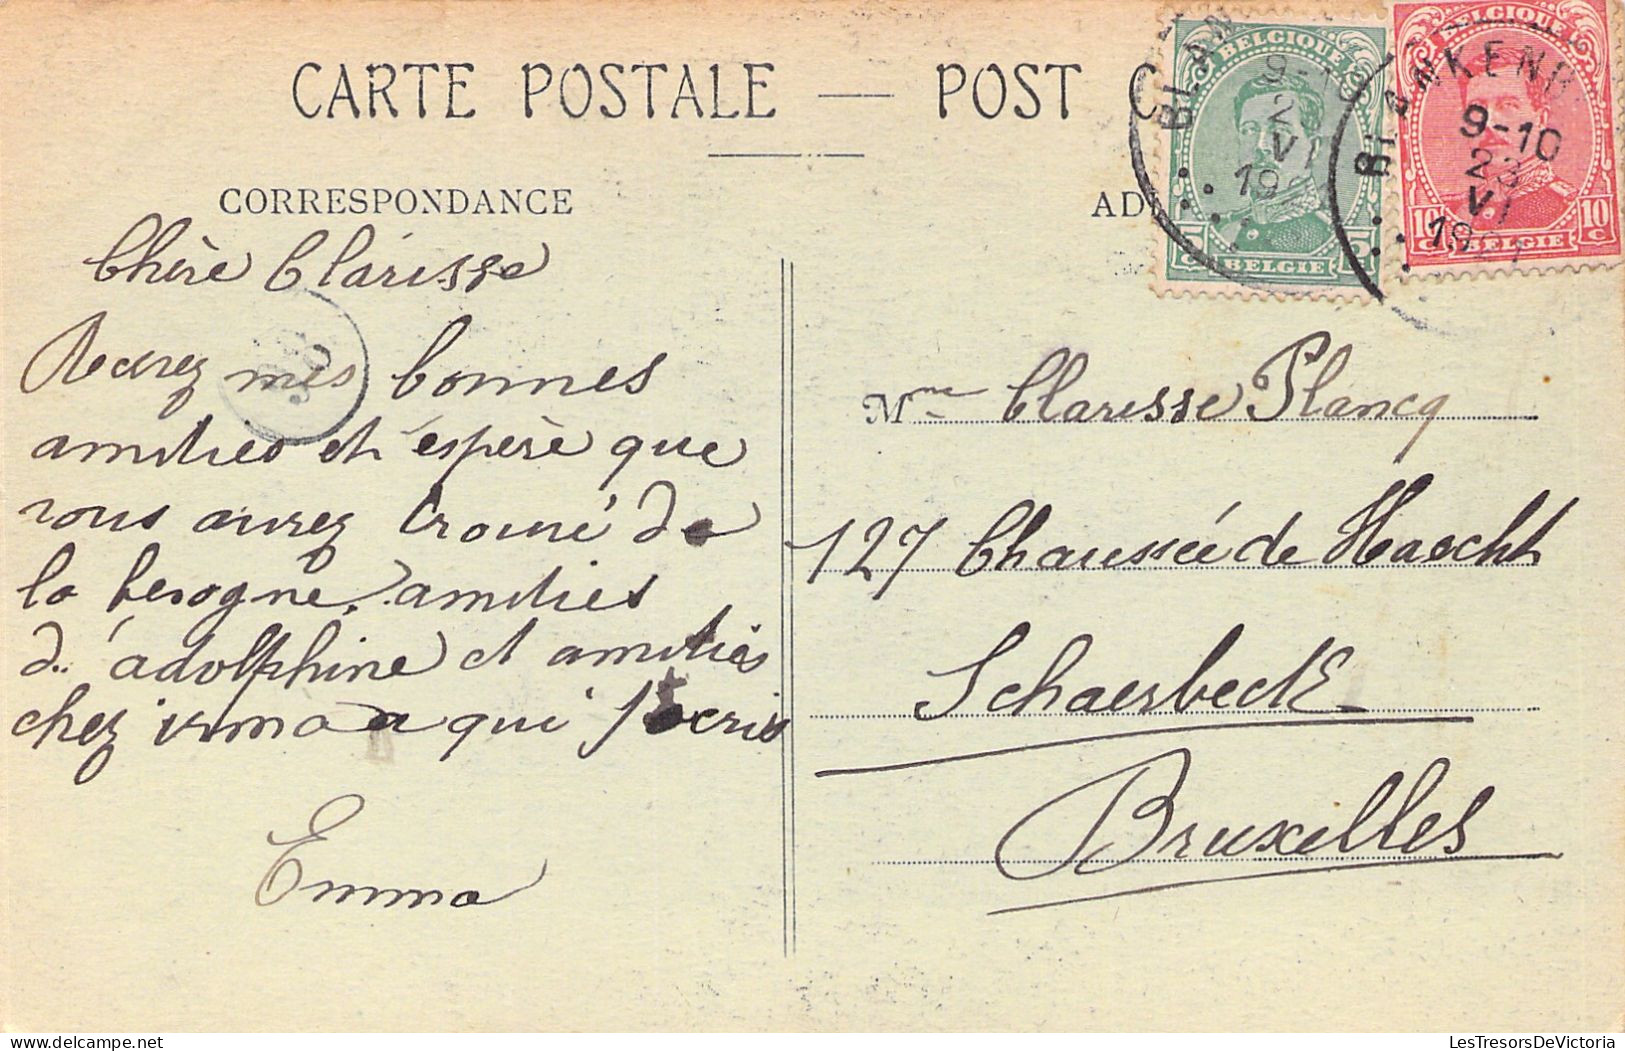 CARTE POSTALE — POST C
CORRESPONDANCE
AD
BELGIQUE
5 5
C BELGIE C
BELGIQUE
10 10
C BELGIE C
BLAN
9-10
2
VI
192
BLANKENB
9-10
23
VI
1921
Chère Clarisse
Recevez mes bonnes
amitiés et espère que
vous aurez trouvé de
la besogne. amitiés
d'adolphine et amitiés
chez irma a qui j'écris
Emma
Mme Clarisse Plancq
127 Chaussée de Haecht
Schaerbeck
Bruxelles
LesTresorsDeVictoria